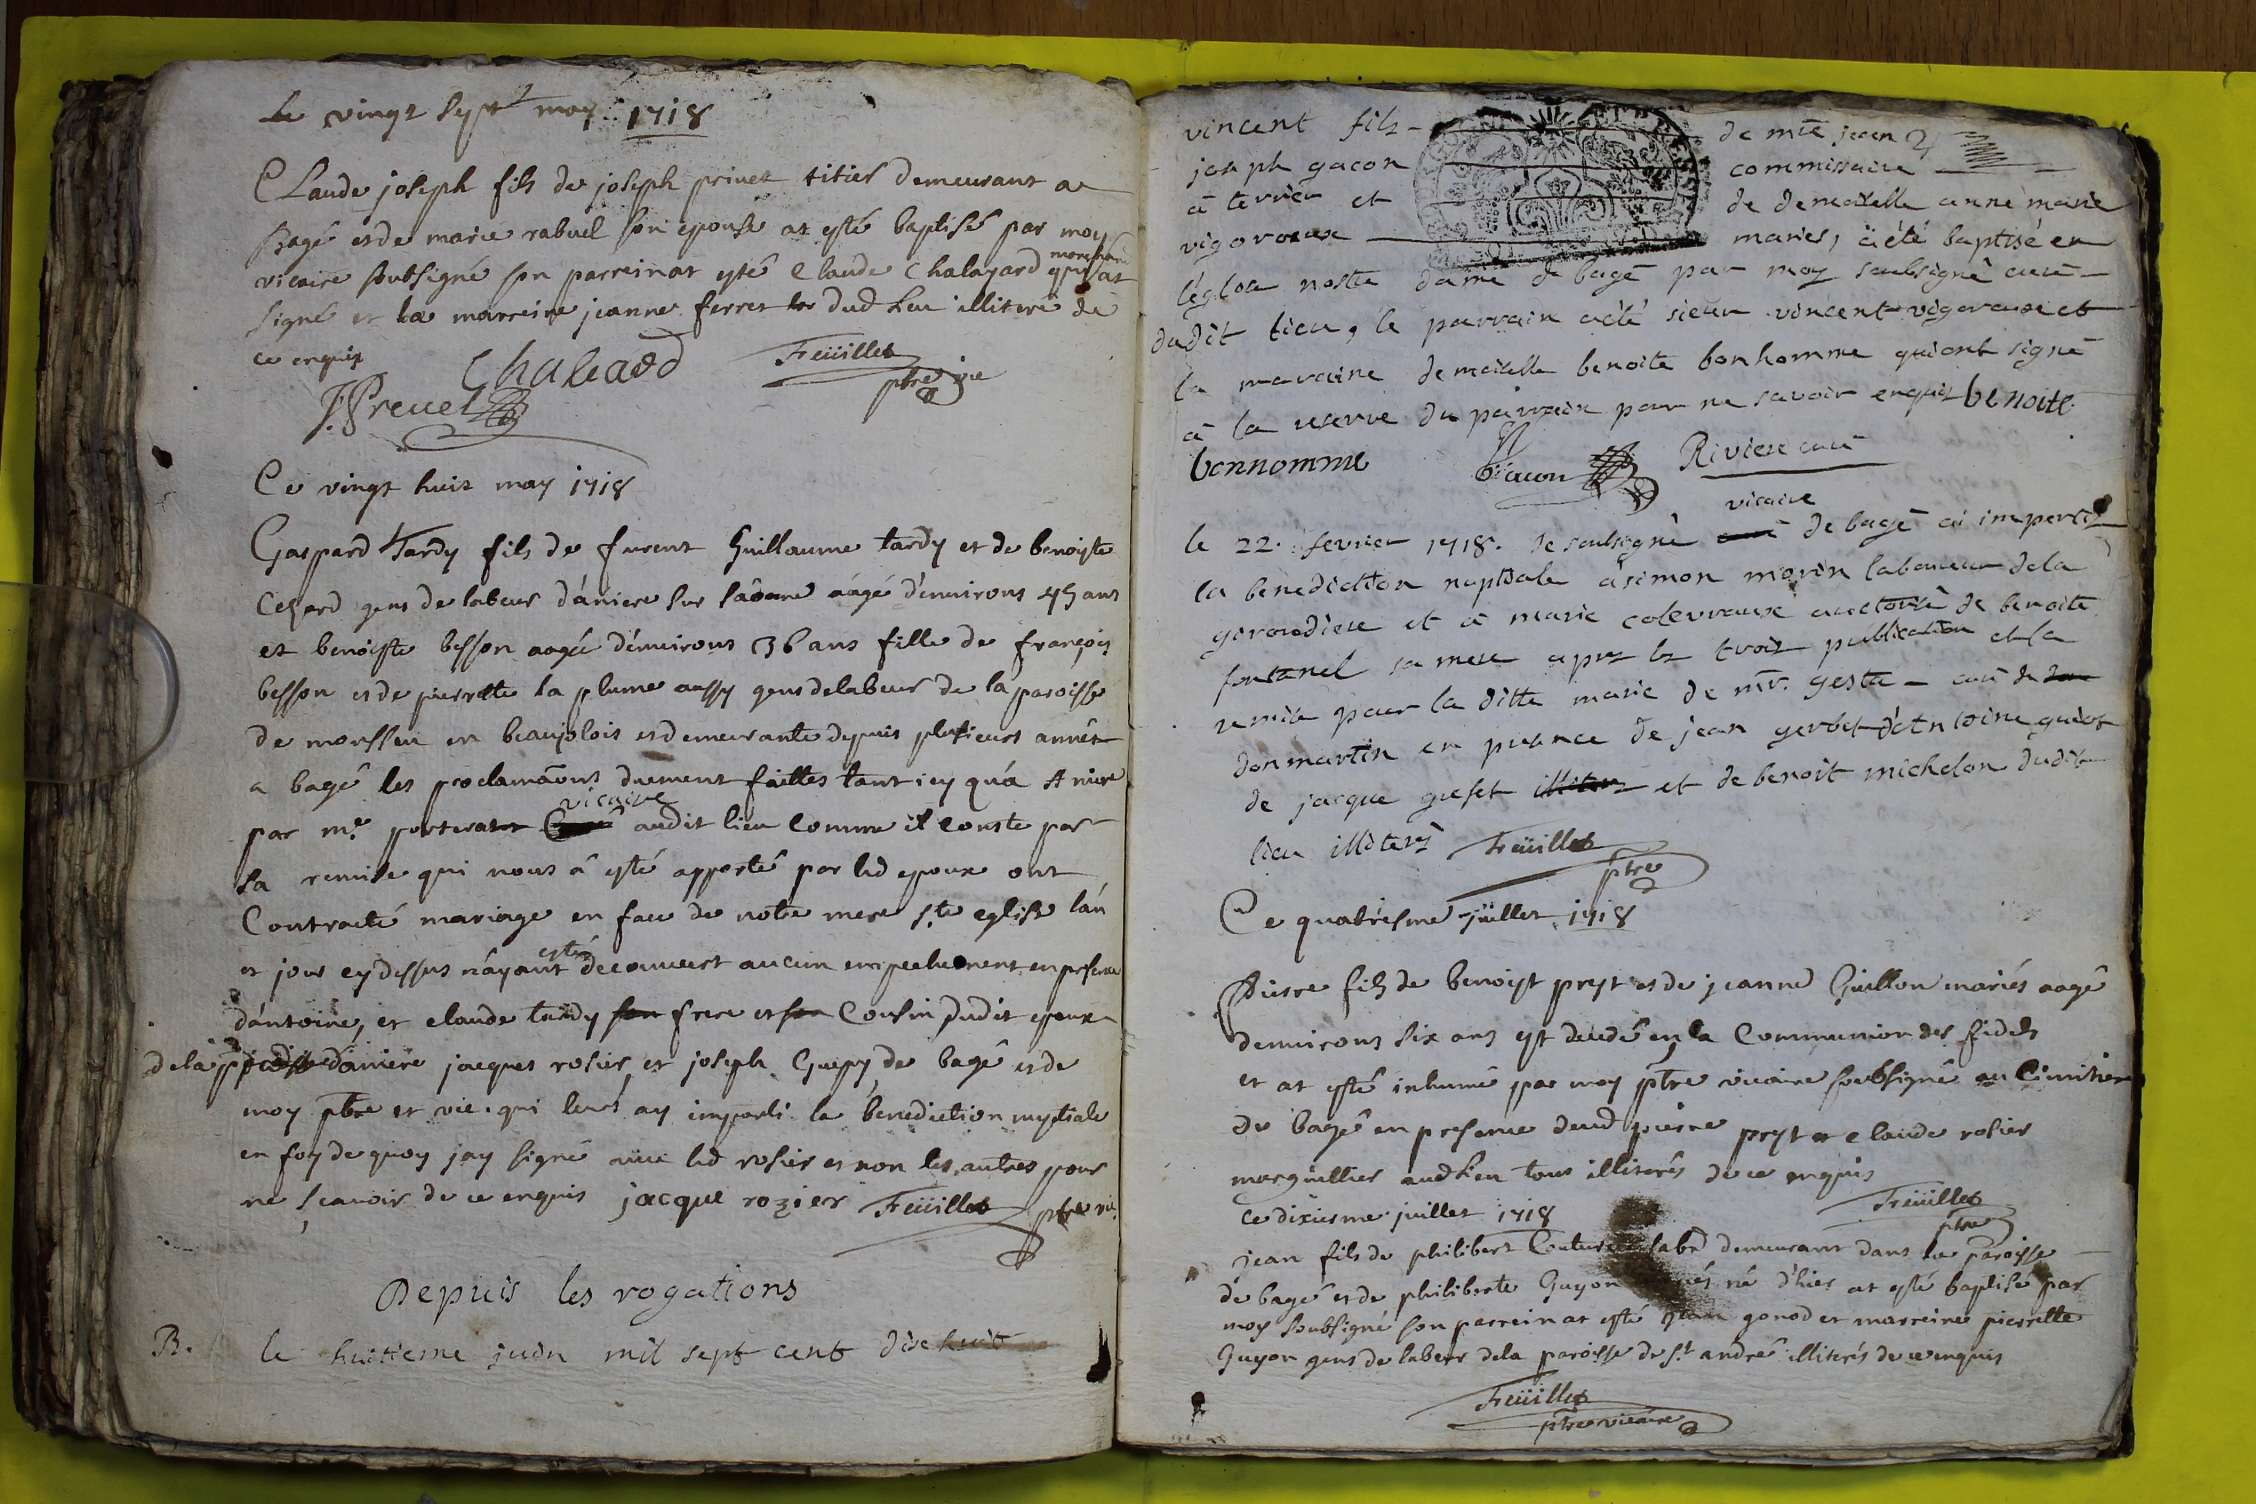 Le vingt sept may 1718
Claude joseph fils de joseph privet titier demeurant a
Bagé et de marie rabuel son epouse at esté baptisé par moy
vicaire soubsigné son parrein at ysté Claude Chalayard marchand qui at
signé et la marreine jeanne ferret dud lieu illiteré de
ce enquis Chaleard Feüillet
J. Prevet ptre vic
Ce vingt huit may 1718
Gaspard Tardy fils de furent Guillaume tardy et de benoiste
gens de labeur d'aniere sur saône aágé d'environs 45 ans
et benoiste besson aagée d'environs 36 ans fille de françois
besson et de pierrette la plume aussy gens de labeur de la paroisse
de monsseu en beaujolois et demeurante depuis plusieurs années
a bagé les proclamaôns duement faittes tant icy qu'a Aniere
par mre vicaire audit lieu comme il conste par
sa remise qui nous a ysté apporté par led epoux ont
Contracté mariage en face de notre mere ste eglise l'an
et jour cy dessus n'ayant esté decouvert aucun empechement en presence
d'antoine, et claude tardy son frere et son Cousin dudit epoux
de la d'aniere jacques rosier et joseph Guepy de bagé et de
moy ptre et vic. qui leurs ay imparti la benediction nuptiale
en foy de quoy jay signé avec led rosier et non les autres pour
ne sçavoir de ce enquis jacque rozier Feüillet ptre vic.
Depuis les rogations
B. le huitieme juin mil sept cent dix huit
vincent fils de mre jean
joseph gacon commissaire
à terrier et de demoiselle anne marie
vigoroux mariés, a été baptisé en
l'eglise nostre dame de bagé par moy soubsigné curé
dudit lieu, le parrain a été sieur vincent vigoroux et
la maraine demoiselle benoite bonhomme qui ont signé
à la reserve du parrain pour ne savoir enquis benoite
bonnomme Gacon Riviere curé
le 22. fevrier 1718. Je soubsigné vicaire de bagé ai imperti
la benediction nuptiale à simon morin laboureur de la
giroudiere et à marie colevraux auctorisé de benoite
fontanel sa mere apres les trois publication et la
remise pour la ditte marie de mr. geste curé de
donmartin en presence de jean gerbet d'Antoine guiot
de jacque et de benoit michelon dudit
lieu illiterés Feüillet
ptre
Ce quatriesme juillet 1718
Pierre fils de benoist pryt et de jeanne Guillon mariés aagé
denvirons six ans est decedé en la Communion des fideles
et at esté inhumé par moy ptre vicaire soubsigné au Cimitiere
de bagé en presence dud pierre pryt et claude rosier
marguillier aud lieu tous illiterés de ce enquis
Feüillet
ptre
Ce dixiesme juillet 1718
jean fils de philibert demeurant dans la paroisse
de bagé et de philiberte Guyon né d'hier at esté baptisé par
moy soubsigné son parrein at esté jean gonod et marreine pierrette
Guyon gens de labeur de la paroisse de st andré illiterés de ce enquis
Feüillet
ptre vicaire